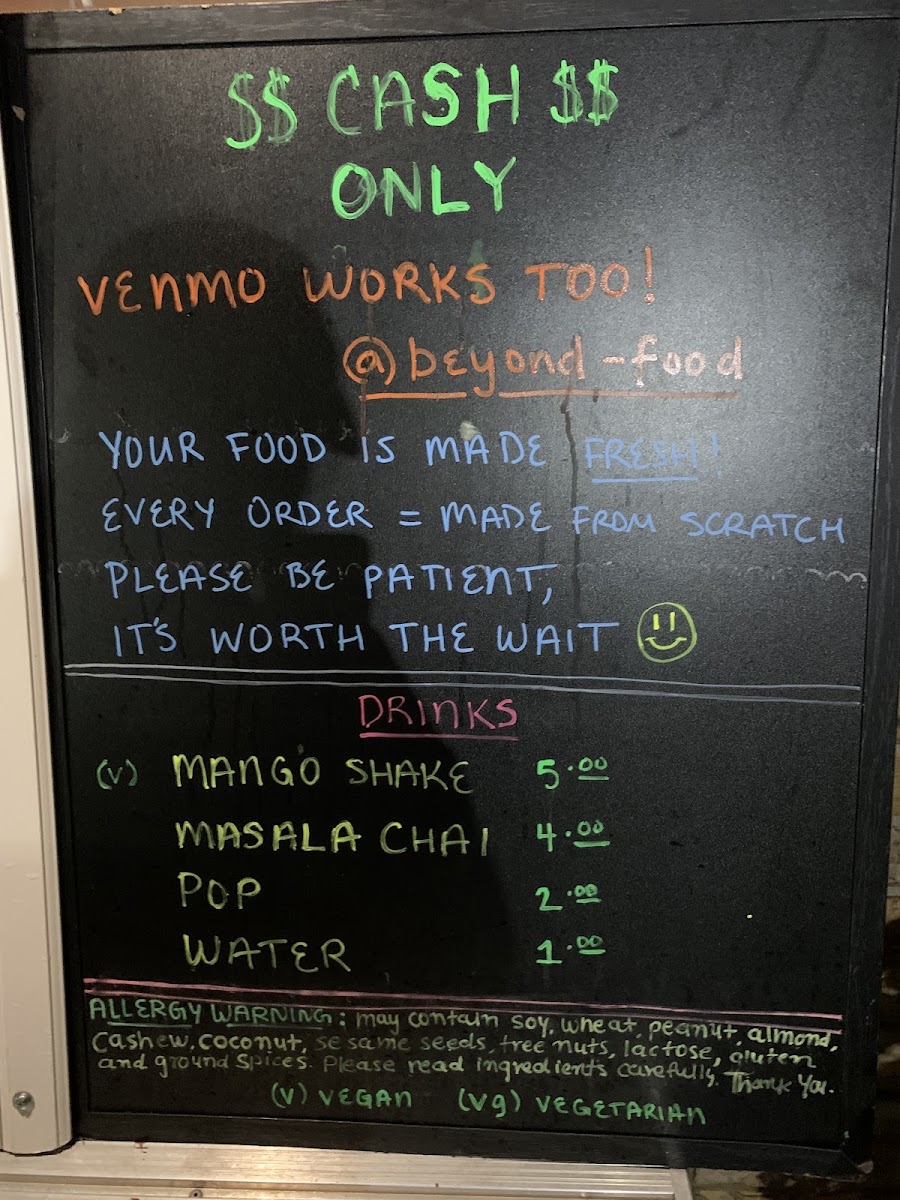 $$ CASH $$
ONLY
VENMO WORKS TOO!
@beyond-food
YOUR FOOD IS MADE FRESH!
EVERY ORDER = MADE FROM SCRATCH
PLEASE BE PATIENT,
IT'S WORTH THE WAIT
DRINKS
(V) MANGO SHAKE 5.00
MASALA CHAI 4.00
POP 2.00
WATER 1.00
ALLERGY WARNING: may contain soy, wheat, peanut, almond,
Cashew, coconut, sesame seeds, tree nuts, lactose, gluten
and ground spices. Please read ingredients carefully. Thank You.
(V) VEGAN (Vg) VEGETARIAN